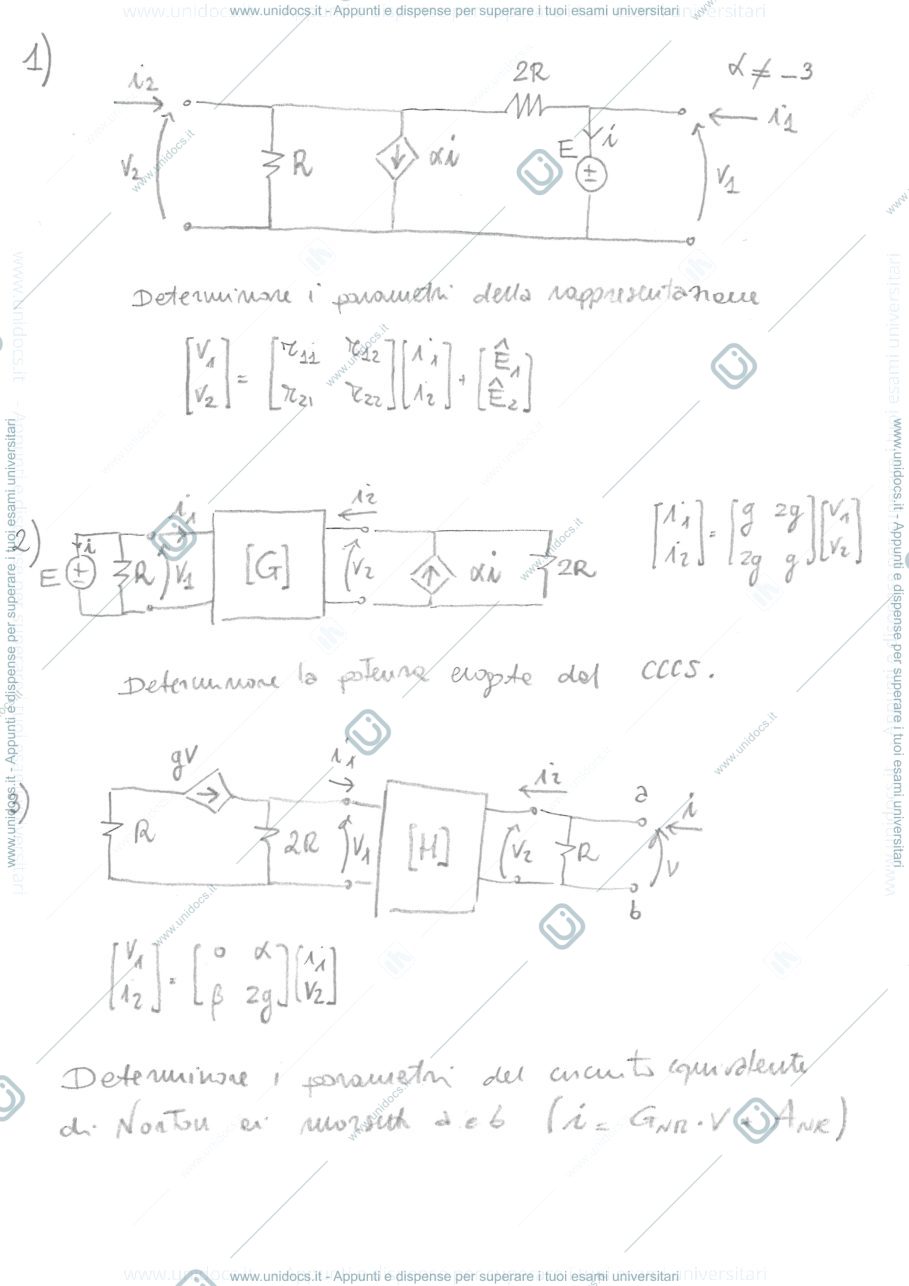 www.unidocs.it - Appunti e dispense per superare i tuoi esami universitari
1)
i2
2R
α ≠ -3
i1
V2
R
αi
E
i
V1
Determinare i parametri della rappresentazione
[V1 V2] = [r11 r12 r21 r22] [i1 i2] + [Ê1 Ê2]
2)
i
E
R
i1
V1
[G]
i2
V2
αi
2R
[i1 i2] = [g 2g 2g g] [V1 V2]
Determinare la potenza erogata dal CCCS.
3)
gV
R
2R
i1
V1
[H]
i2
V2
R
a
i
V
b
[V1 i2] = [0 α β 2g] [i1 V2]
Determinare i parametri del circuito equivalente
di Norton ai morsetti a e b (i = GNR · V + ANR)
www.unidocs.it - Appunti e dispense per superare i tuoi esami universitari